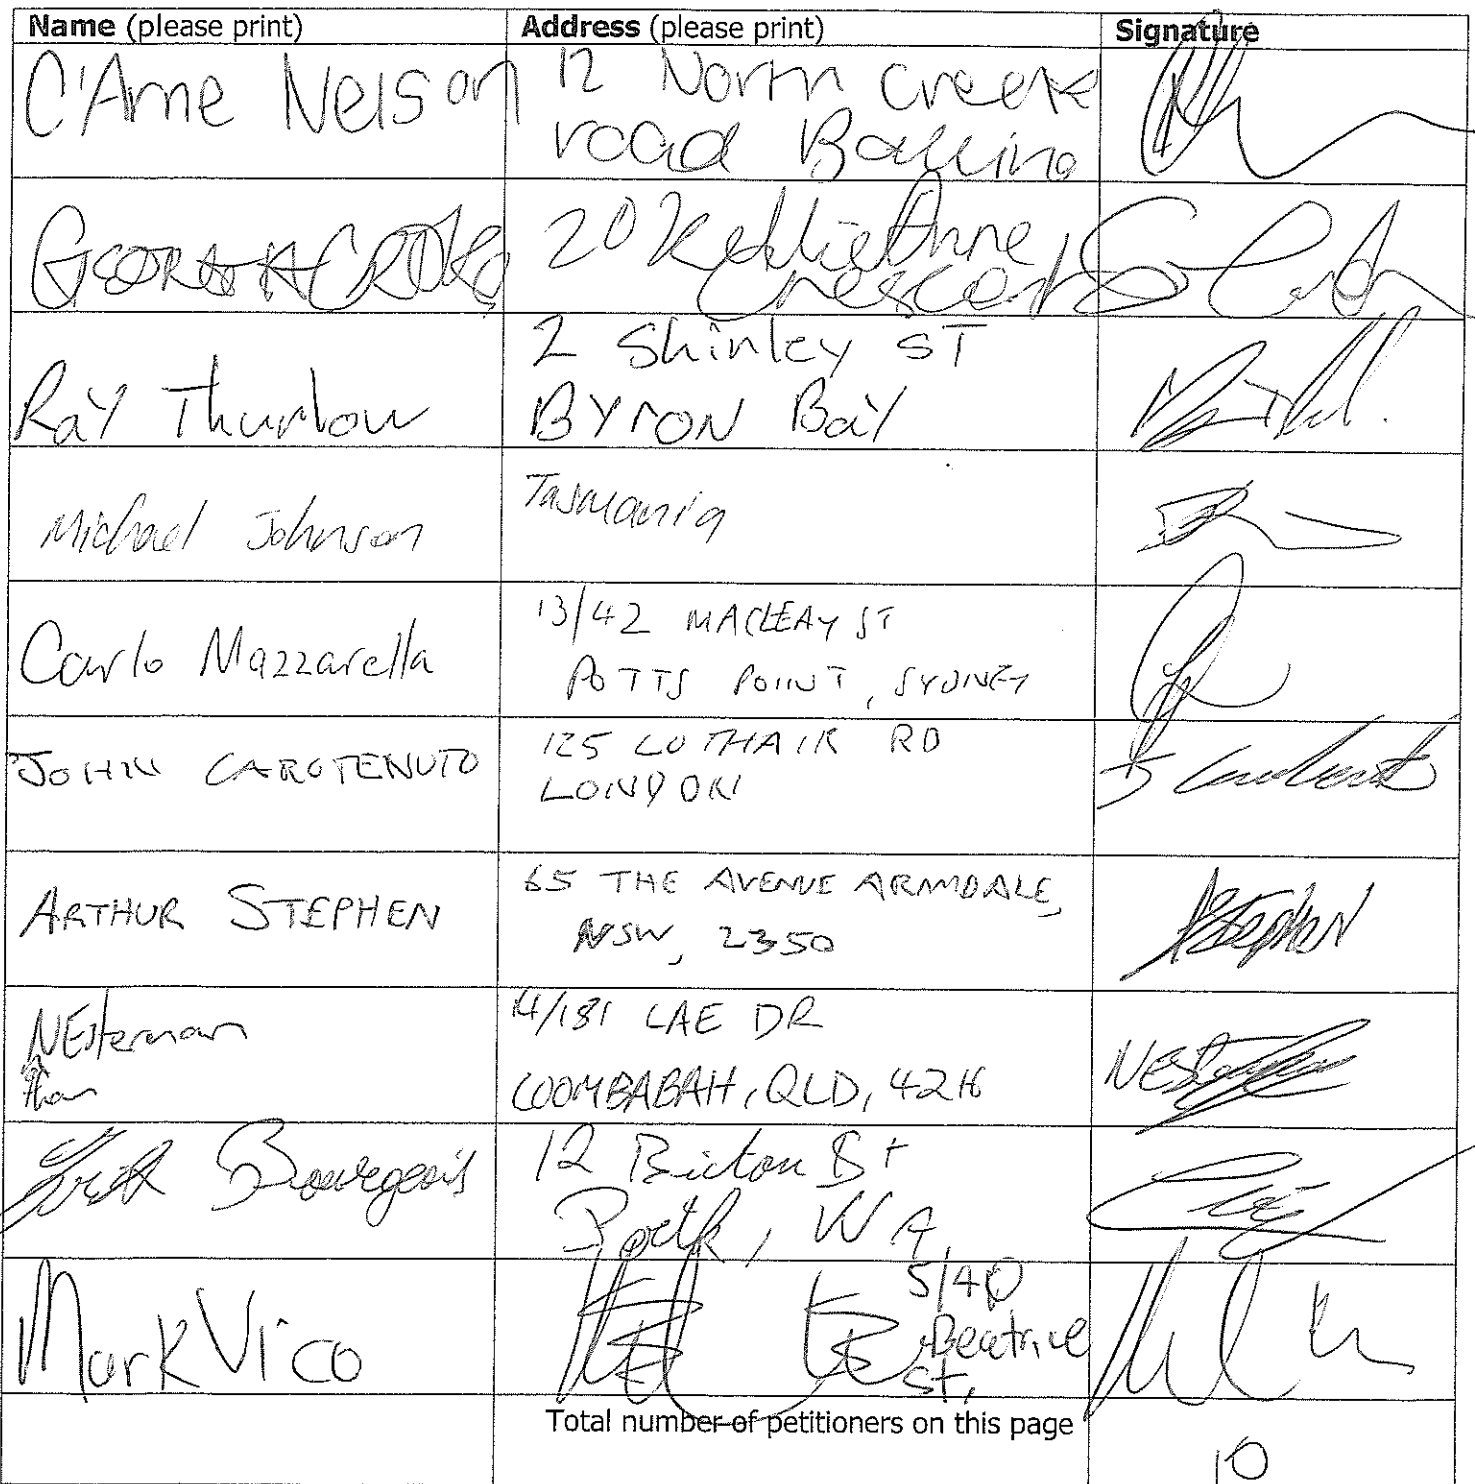 Name (please print) Address (please print) Signature
C'Arne Nelson
12 North Creek
road Ballina
20 Kellie Anne
Crescent
Ray Thurlow
2 Shirley ST
BYrON Bay
Michael Johnson
Tasmania
Carlo Mazzarella
13/42 MACLEAY ST
POTTS POINT, SYDNEY
JOHN CAROTENUTO
125 LOTHAIR RD
LONDON
ARTHUR STEPHEN
65 THE AVENUE ARMIDALE,
NSW, 2350
NEsterman
14/181 LAE DR
COOMBABAH, QLD, 4216
Bourgeois
12 Bicton St
Perth, WA
Mark Vico
5/40
Beatrice
St,
Total number of petitioners on this page
10